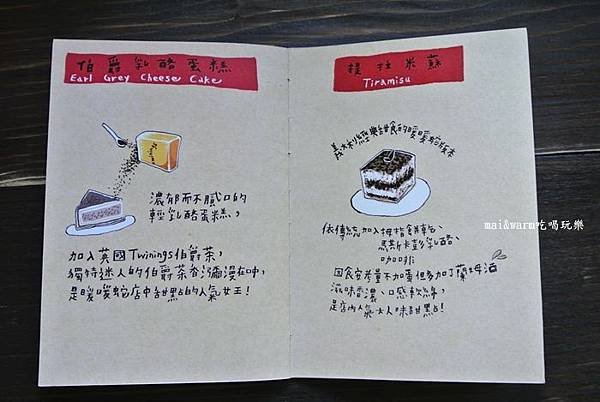 伯爵乳酪蛋糕
Earl Grey Cheese Cake
濃郁而不膩口的
輕乳酪蛋糕、
加入英國Twinings伯爵茶,
獨特迷人的伯爵茶香瀰漫在口中,
是暖暖蛇店中甜點的人氣女王!
提拉米蘇
Tiramisu
義大利經典甜食的暖暖蛇版本
依傳統加入拇指餅乾、
馬斯卡彭乳酪、
咖啡
因食安考量不加蛋但多加了蘭姆酒
滋味香濃、口感軟綿,
是店內人氣大人味甜點!
mai&warm吃喝玩樂